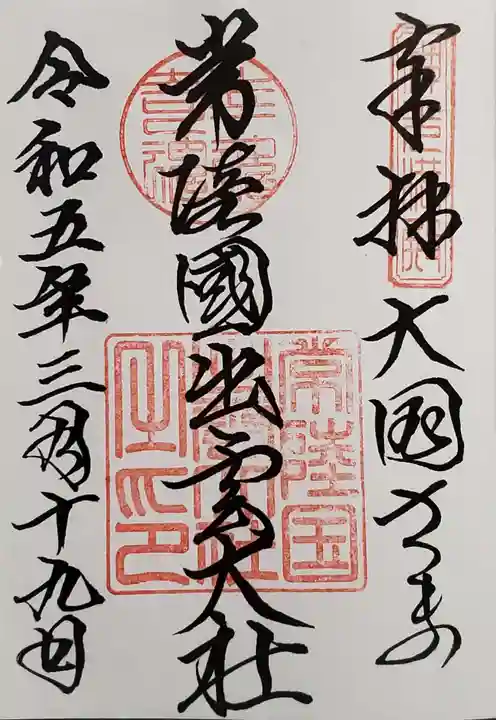 奉拝 大国さま
常陸國出雲大社
令和五年三月十九日
常陸国
出雲大社
之印